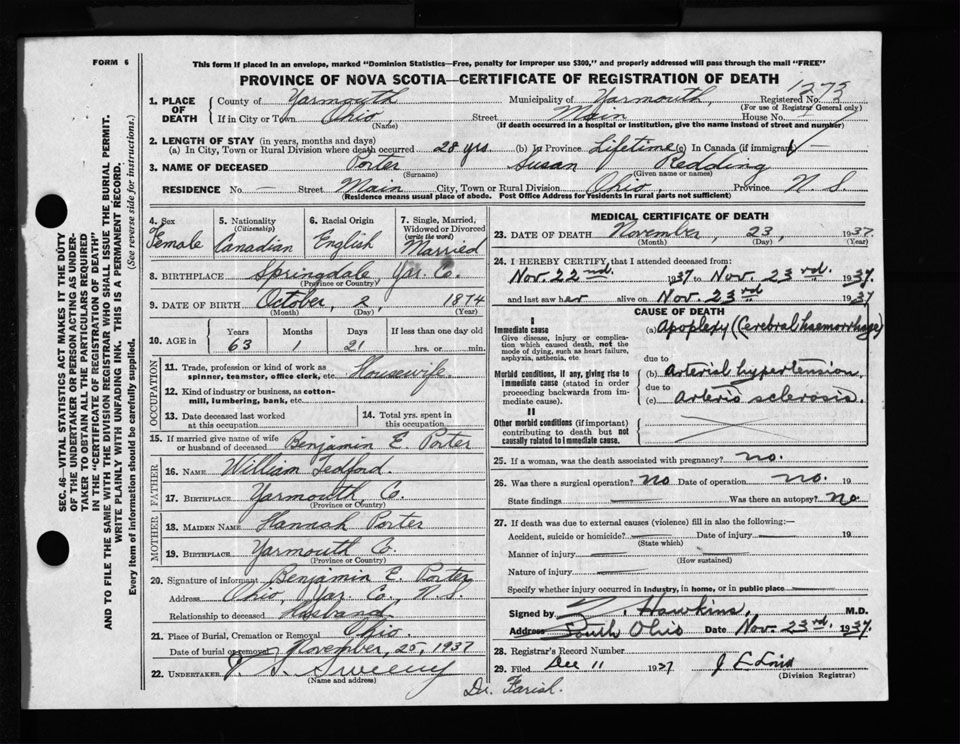 FORM 6
This form if placed in an envelope, marked "Dominion Statistics—Free, penalty for improper use $300," and properly addressed will pass through the mail "FREE"
PROVINCE OF NOVA SCOTIA—CERTIFICATE OF REGISTRATION OF DEATH
1273
1. PLACE OF DEATH { County of Yarmouth Municipality of Yarmouth, Registered No.
(For use of Registrar General only)
If in City or Town Ohio, Street Main House No.
(Name) (If death occurred in a hospital or institution, give the name instead of street and number)
2. LENGTH OF STAY (in years, months and days)
(a) In City, Town or Rural Division where death occurred 28 yrs. (b) in Province Lifetime (c) In Canada (if immigrant) —
3. NAME OF DECEASED Porter Susan Redding
(Surname) (Given name or names)
RESIDENCE No. — Street Main City, Town or Rural Division Ohio, Province N S.
(Residence means usual place of abode. Post Office Address for residents in rural parts not sufficient)
SEC. 46—VITAL STATISTICS ACT MAKES IT THE DUTY
OF THE UNDERTAKER OR PERSON ACTING AS UNDER-
TAKER TO OBTAIN ALL THE PARTICULARS REQUIRED
IN THE "CERTIFICATE OF REGISTRATION OF DEATH"
AND TO FILE THE SAME WITH THE DIVISION REGISTRAR WHO SHALL ISSUE THE BURIAL PERMIT.
WRITE PLAINLY WITH UNFADING INK. THIS IS A PERMANENT RECORD.
Every item of information should be carefully supplied. (See reverse side for instructions.)
4. Sex
Female
5. Nationality
(Citizenship)
Canadian
6. Racial Origin
English
7. Single, Married,
Widowed or Divorced
(write the word)
Married
8. BIRTHPLACE Springdale Yar. Co.
(Province or Country)
9. DATE OF BIRTH October, 2, 1874
(Month) (Day) (Year)
10. AGE in Years Months Days If less than one day old
63 1 21 hrs. or min.
OCCUPATION
11. Trade, profession or kind of work as
spinner, teamster, office clerk, etc. Housewife.
12. Kind of industry or business, as cotton-
mill, lumbering, bank, etc.
13. Date deceased last worked
at this occupation
14. Total yrs. spent in
this occupation
15. If married give name of wife
or husband of deceased Benjamin E. Porter
FATHER
16. NAME William Tedford.
17. BIRTHPLACE Yarmouth, Co.
(Province or Country)
MOTHER
18. MAIDEN NAME Hannah Porter
19. BIRTHPLACE Yarmouth Co.
(Province or Country)
20. Signature of informant Benjamin E. Porter
Address Ohio, Yar. Co., N.S.
Relationship to deceased Husband.
21. Place of Burial, Cremation or Removal Ohio.
Date of burial or removal November, 25, 1937
22. UNDERTAKER V. S. Sweeny
(Name and address)
MEDICAL CERTIFICATE OF DEATH
23. DATE OF DEATH November, 23, 1937.
(Month) (Day) (Year)
24. I HEREBY CERTIFY, that I attended deceased from:
Nov. 22nd. 1937 to Nov. 23rd. 1937.
and last saw her alive on Nov. 23rd 1937
CAUSE OF DEATH
I
Immediate cause (a) Apoplexy (Cerebral haemorrhage)
Give disease, injury or complica-
tion which caused death, not the
mode of dying, such as heart failure,
asphyxia, asthenia, etc
due to
Morbid conditions, if any, giving rise to
immediate cause (stated in order
proceeding backwards from im-
mediate cause).
(b) Arterial hypertension,
due to
(c) Arterio sclerosis.
II
Other morbid conditions (if important)
contributing to death but not
causally related to immediate cause.
25. If a woman, was the death associated with pregnancy? no.
26. Was there a surgical operation? no Date of operation no. 19
State findings Was there an autopsy? no
27. If death was due to external causes (violence) fill in also the following:—
Accident, suicide or homicide? Date of injury 19
(State which)
Manner of injury
(How sustained)
Nature of injury
Specify whether injury occurred in Industry, in home, or in public place
Signed by Hawkins, M.D.
Address South Ohio Date Nov. 23rd. 1937.
28. Registrar's Record Number
29. Filed Dec 11 1937
(Division Registrar)
Dr. Farish.